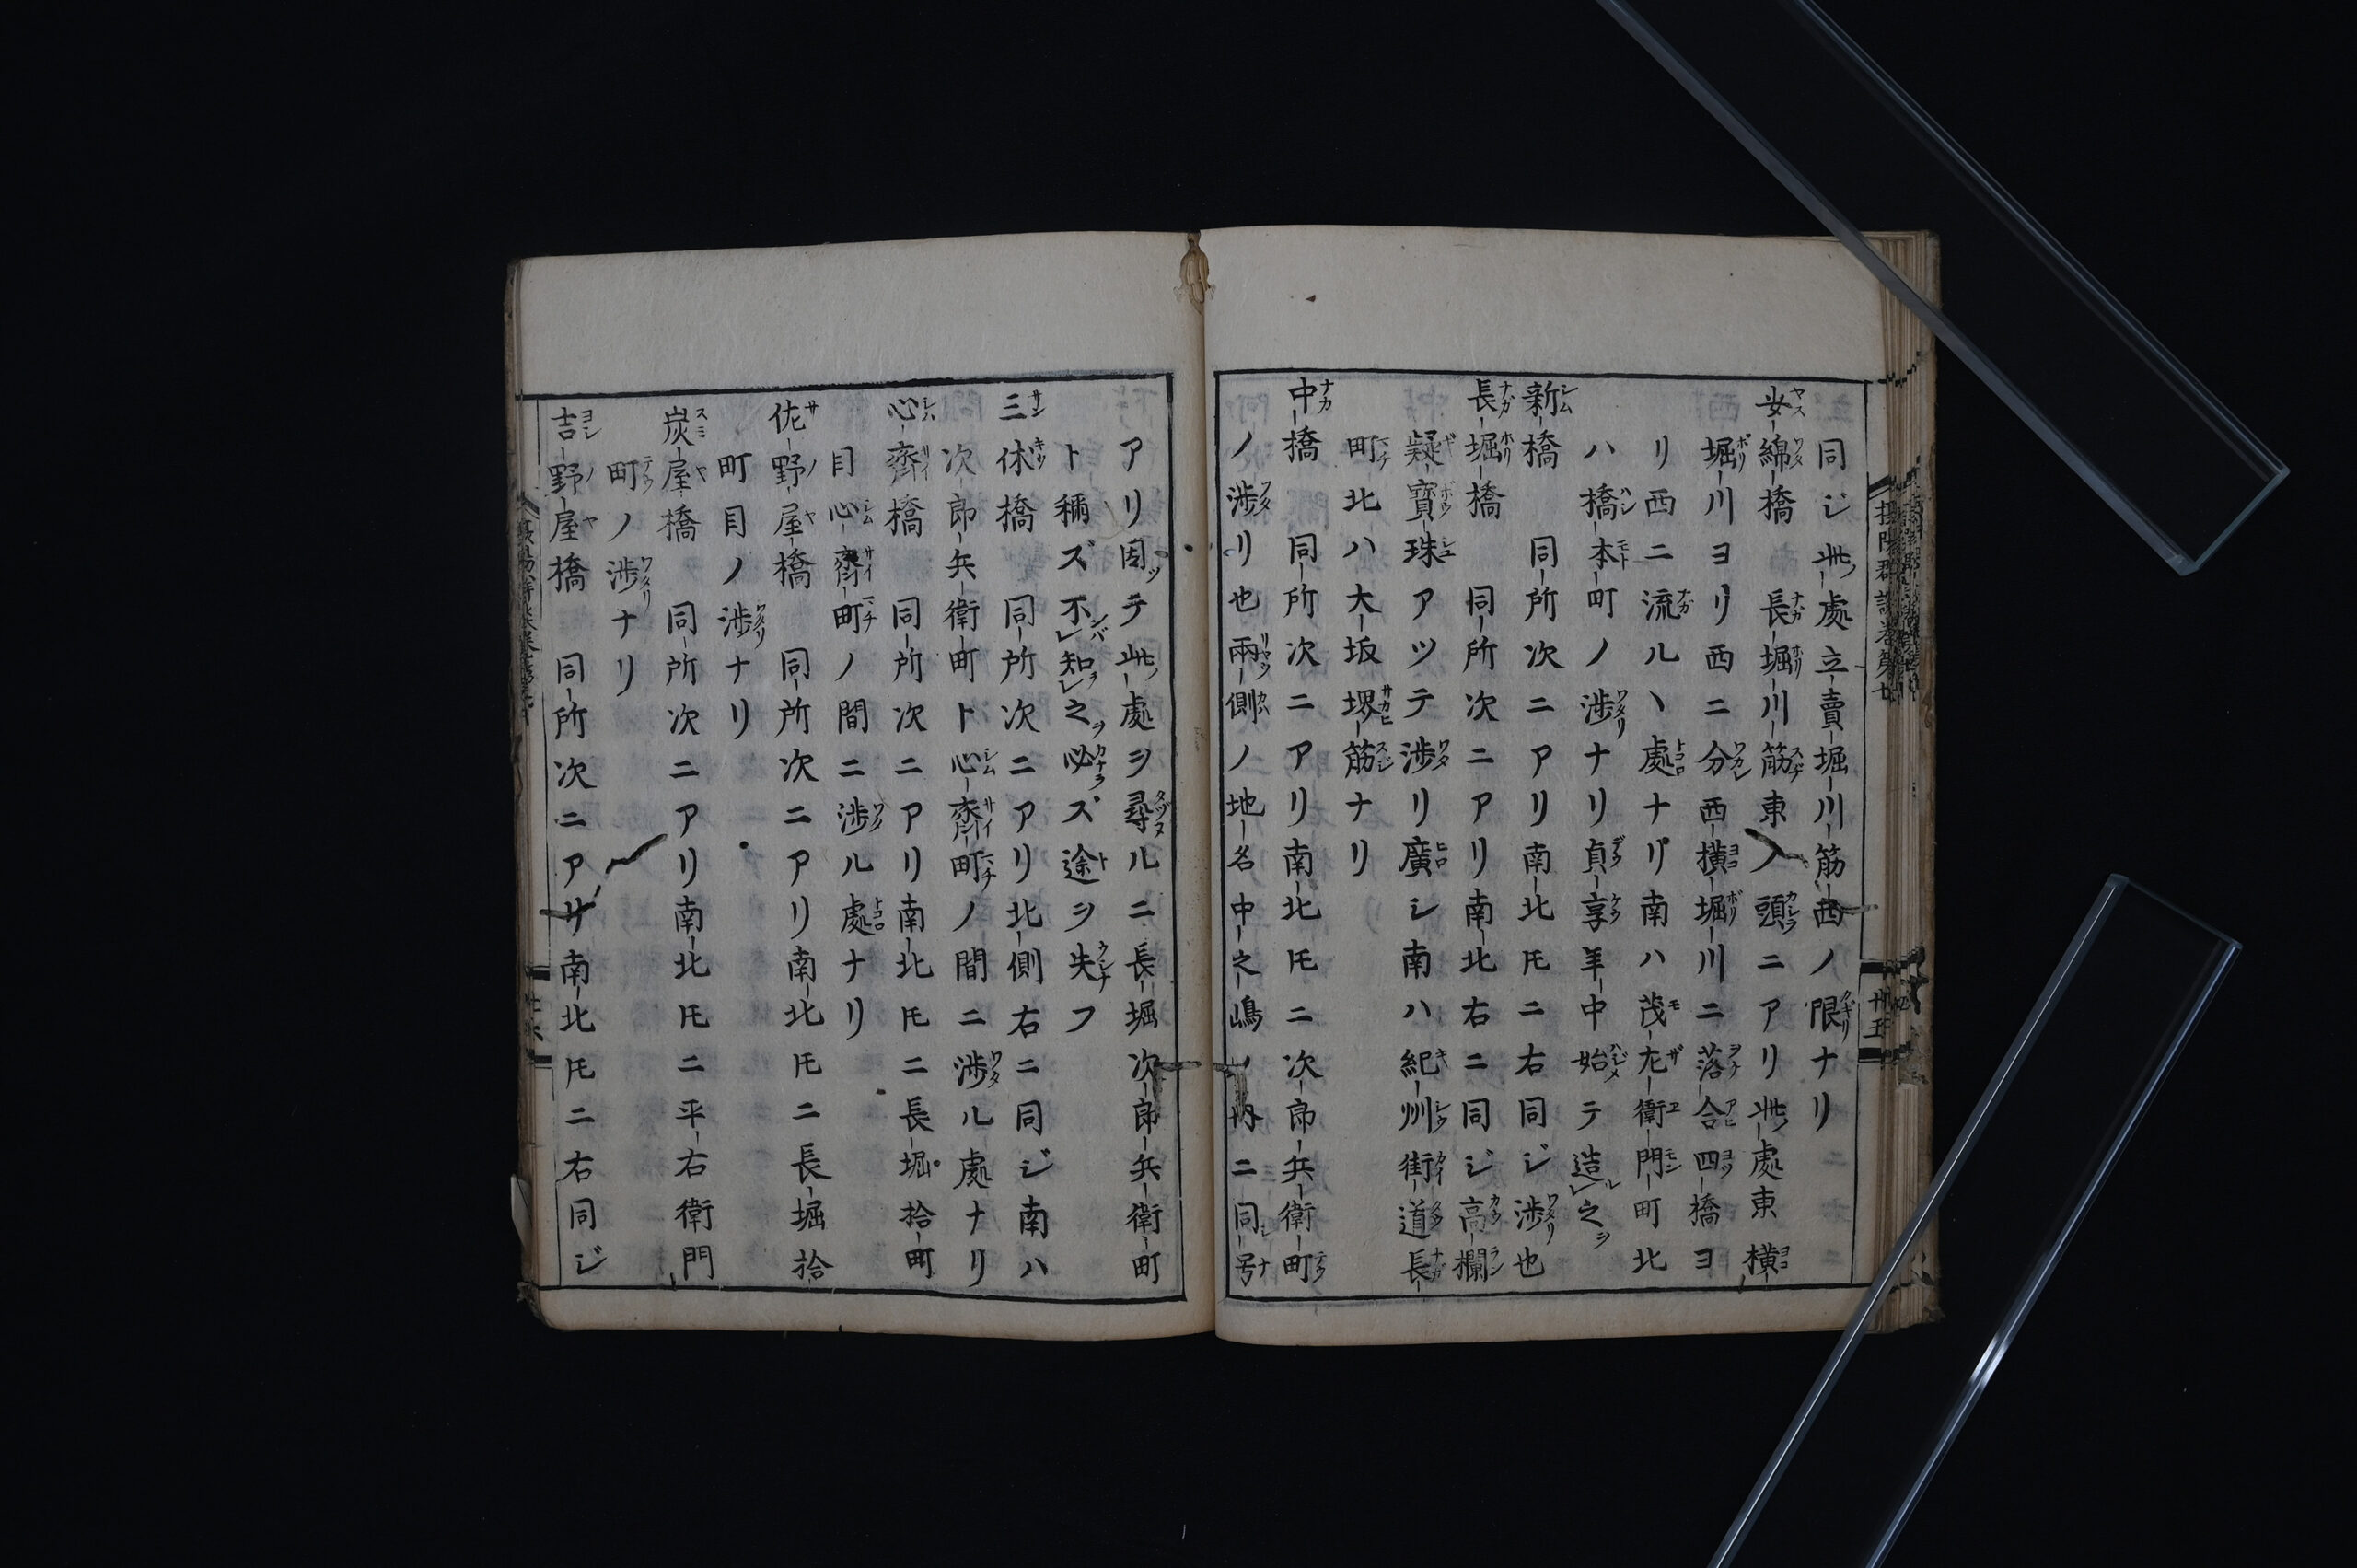 同ジ此處立賣堀川筋西ノ限ナリ
安綿橋 長堀川筋東ノ頭ニアリ此處東横
堀川ヨリ西ニ分西横堀川ニ落合四橋ヨ
リ西ニ流ルヽ處ナリ南ハ茂左衛門町北
ハ橋本町ノ渉ナリ貞享年中始テ造之
新橋 同所次ニアリ南北ヒニ右同ジ渉也
長堀橋 同所次ニアリ南北右ニ同ジ高欄
疑寶珠アツテ渉リ廣シ南ハ紀州街道長
町北ハ大坂堺筋ナリ
中橋 同所次ニアリ南北㕝ニ次郎兵衛町
ノ渉リ也兩側ノ地名中之嶋ノ内ニ同号
アリ因テ此處ヲ尋ルニ長堀次郎兵衛町
ト稱ズ不知之必ズ途ヲ失フ
三休橋 同所次ニアリ北側右ニ同ジ南ハ
次郎兵衛町ト心齋町ノ間ニ渉ル處ナリ
心齋橋 同所次ニアリ南北㕝ニ長堀拾町
目心齋町ノ間ニ渉ル處ナリ
佐野屋橋 同所次ニアリ南北㕝ニ長堀拾
町目ノ渉ナリ
炭屋橋 同所次ニアリ南北㕝ニ平右衛門
町ノ渉ナリ
吉野屋橋 同所次ニアリ南北㕝ニ右同ジ
攝陽群談巻第廿
廿五